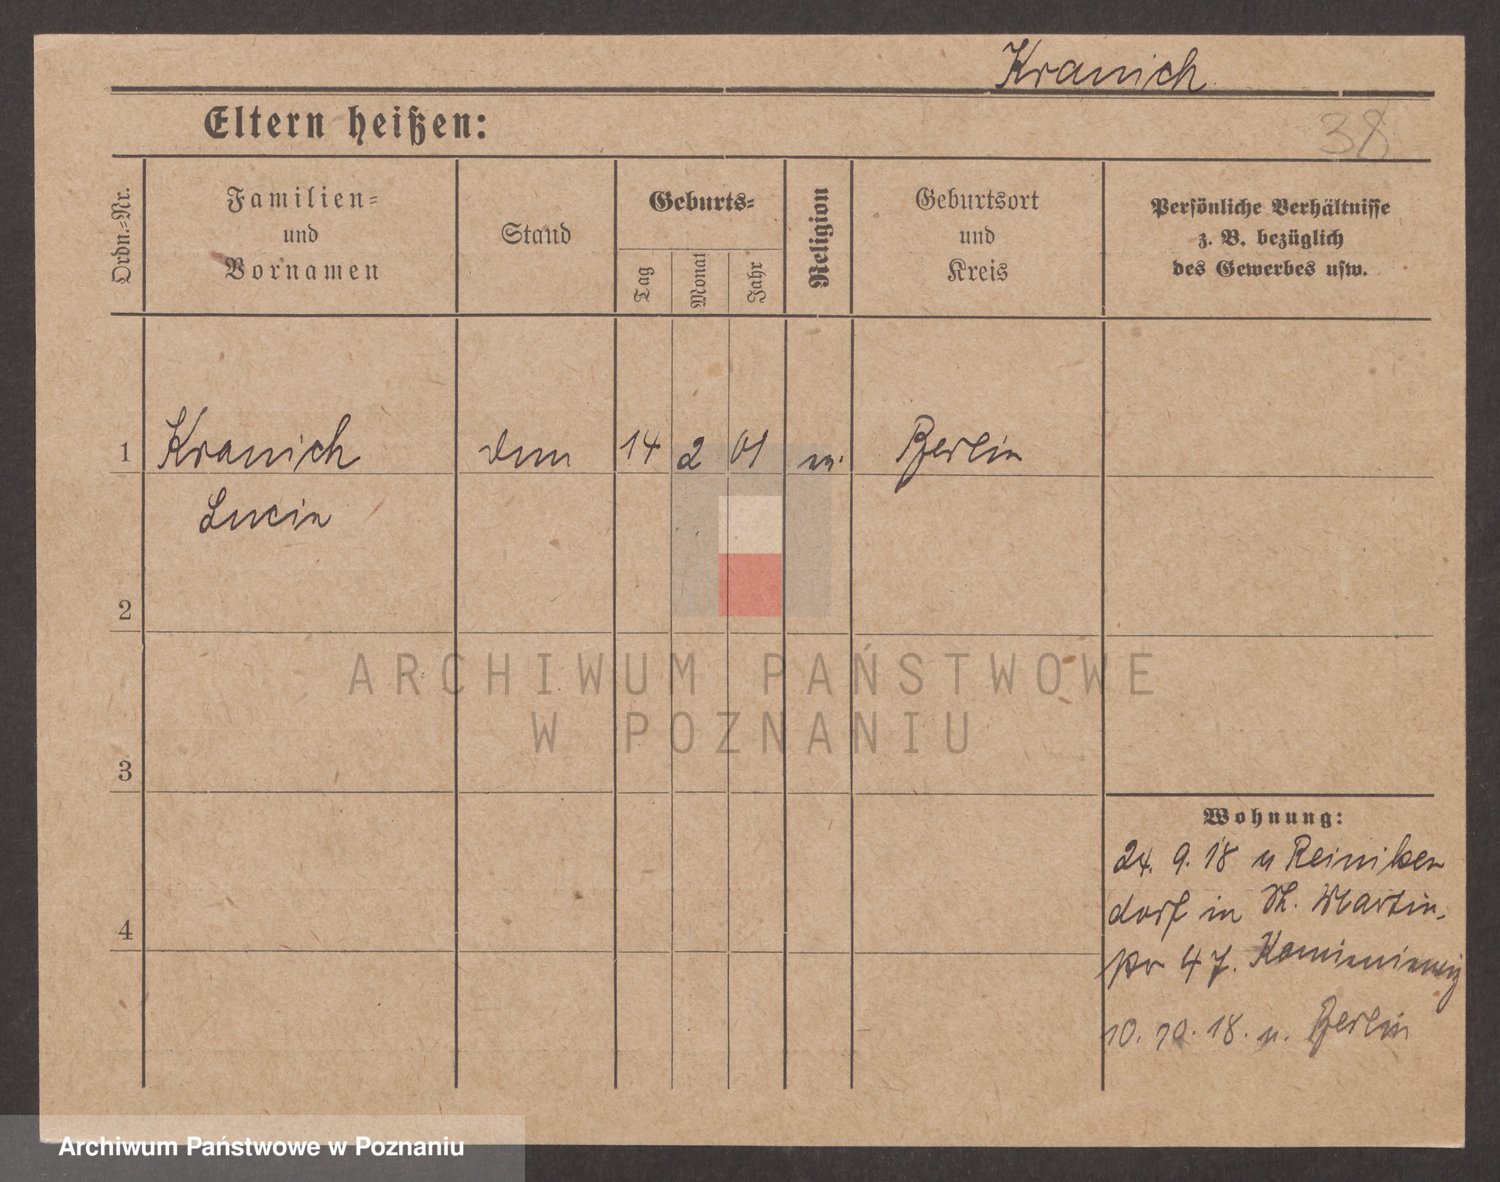 Kranich
Eltern heißen:
38
Ordn.-Nr.
Familien-
und
Vornamen
Stand
Geburts-
Tag
Monat
Jahr
Religion
Geburtsort
und
Kreis
Persönliche Verhältnisse
z. B. bezüglich
des Gewerbes usw.
1 Kranich 14 2 01 Berlin
Lucie
2
ARCHIWUM PAŃSTWOWE
W POZNANIU
3
Wohnung:
24. 9. 18 v Reiniken
dorf in St. Martin-
4
str 47.
10. 10. 18. n. Berlin
Archiwum Państwowe w Poznaniu